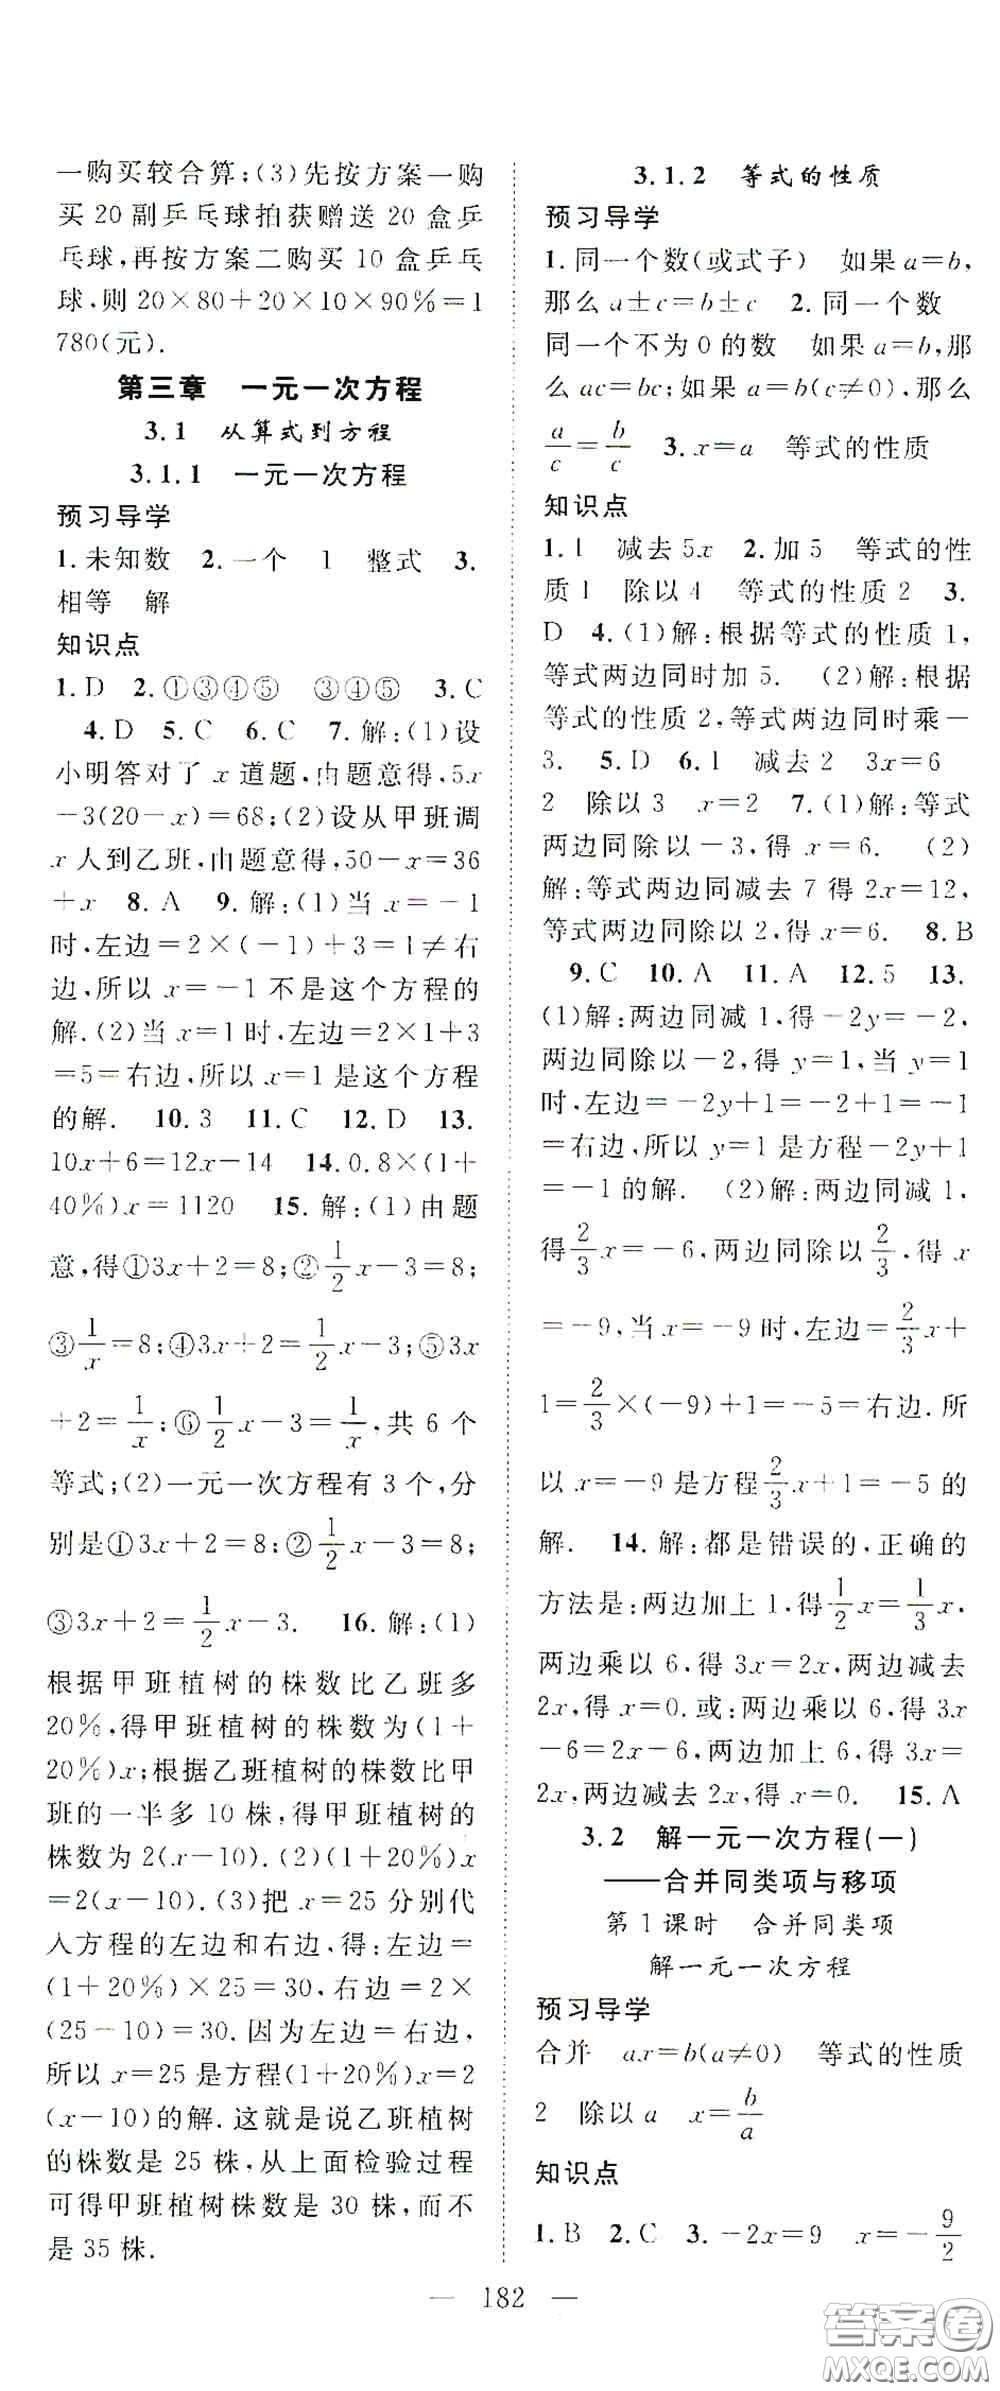 一购买较合算;(3)先按方案一购
买 20 副乒乓球拍获赠送 20 盒乒
乓球,再按方案二购买 10 盒乒乓
球,则 20×80+20×10×90%=1
780(元).
第三章 一元一次方程
3.1 从算式到方程
3.1.1 一元一次方程
预习导学
1.未知数 2.一个 1 整式 3.
相等 解
知识点
1.D 2.①③④⑤ ③④⑤ 3.C
4.D 5.C 6.C 7.解:(1)设
小明答对了 x 道题,由题意得,5x
-3(20-x)=68;(2)设从甲班调
x 人到乙班,由题意得,50-x=36
+x 8.A 9.解:(1)当 x=-1
时,左边=2×(-1)+3=1≠右
边,所以 x=-1 不是这个方程的
解.(2)当 x=1 时,左边=2×1+3
=5=右边,所以 x=1 是这个方程
的解. 10.3 11.C 12.D 13.
10x+6=12x-14 14.0.8×(1+
40%)x=1120 15.解:(1)由题
意,得①3x+2=8;②1/2x-3=8;
③1/x=8;④3x+2=1/2x-3;⑤3x
+2=1/x;⑥1/2x-3=1/x,共 6 个
等式;(2)一元一次方程有 3 个,分
别是①3x+2=8;②1/2x-3=8;
③3x+2=1/2x-3. 16.解:(1)
根据甲班植树的株数比乙班多
20%,得甲班植树的株数为(1+
20%)x;根据乙班植树的株数比甲
班的一半多 10 株,得甲班植树的
株数为 2(x-10).(2)(1+20%)x
=2(x-10).(3)把 x=25 分别代
入方程的左边和右边,得:左边=
(1+20%)×25=30,右边=2×
(25-10)=30.因为左边=右边,
所以 x=25 是方程(1+20%)x=2
(x-10)的解.这就是说乙班植树
的株数是 25 株,从上面检验过程
可得甲班植树株数是 30 株,而不
是 35 株.
3.1.2 等式的性质
预习导学
1.同一个数(或式子) 如果 a=b,
那么 a±c=b±c 2.同一个数
同一个不为 0 的数 如果 a=b,那
么 ac=bc;如果 a=b(c≠0),那么
a/c=b/c 3.x=a 等式的性质
知识点
1.1 减去 5x 2.加 5 等式的性
质 1 除以 4 等式的性质 2 3.
D 4.(1)解:根据等式的性质 1,
等式两边同时加 5. (2)解:根据
等式的性质 2,等式两边同时乘-
3. 5.D 6.1 减去 2 3x=6
2 除以 3 x=2 7.(1)解:等式
两边同除以-3,得 x=6. (2)
解:等式两边同减去 7 得 2x=12,
等式两边同除以 2,得 x=6. 8.B
9.C 10.A 11.A 12.5 13.
(1)解:两边同减 1,得-2y=-2,
两边同除以-2,得 y=1,当 y=1
时,左边=-2y+1=-2+1=-1
=右边,所以 y=1 是方程-2y+1
=-1 的解. (2)解:两边同减 1,
得2/3x=-6,两边同除以2/3,得 x
=-9,当 x=-9 时,左边=2/3x+
1=2/3×(-9)+1=-5=右边.所
以 x=-9 是方程2/3x+1=-5 的
解. 14.解:都是错误的,正确的
方法是:两边加上 1,得1/2x=1/3x,
两边乘以 6,得 3x=2x,两边减去
2x,得 x=0.或:两边乘以 6,得 3x
-6=2x-6,两边加上 6,得 3x=
2x,两边减去 2x,得 x=0. 15.A
3.2 解一元一次方程(一)
——合并同类项与移项
第 1 课时 合并同类项
解一元一次方程
预习导学
合并 ax=b(a≠0) 等式的性质
2 除以 a x=b/a
知识点
1.B 2.C 3.-2x=9 x=-9/2
— 182 —
答案圈
MXQE.COM